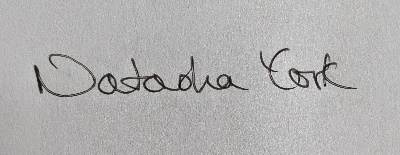 Natasha York